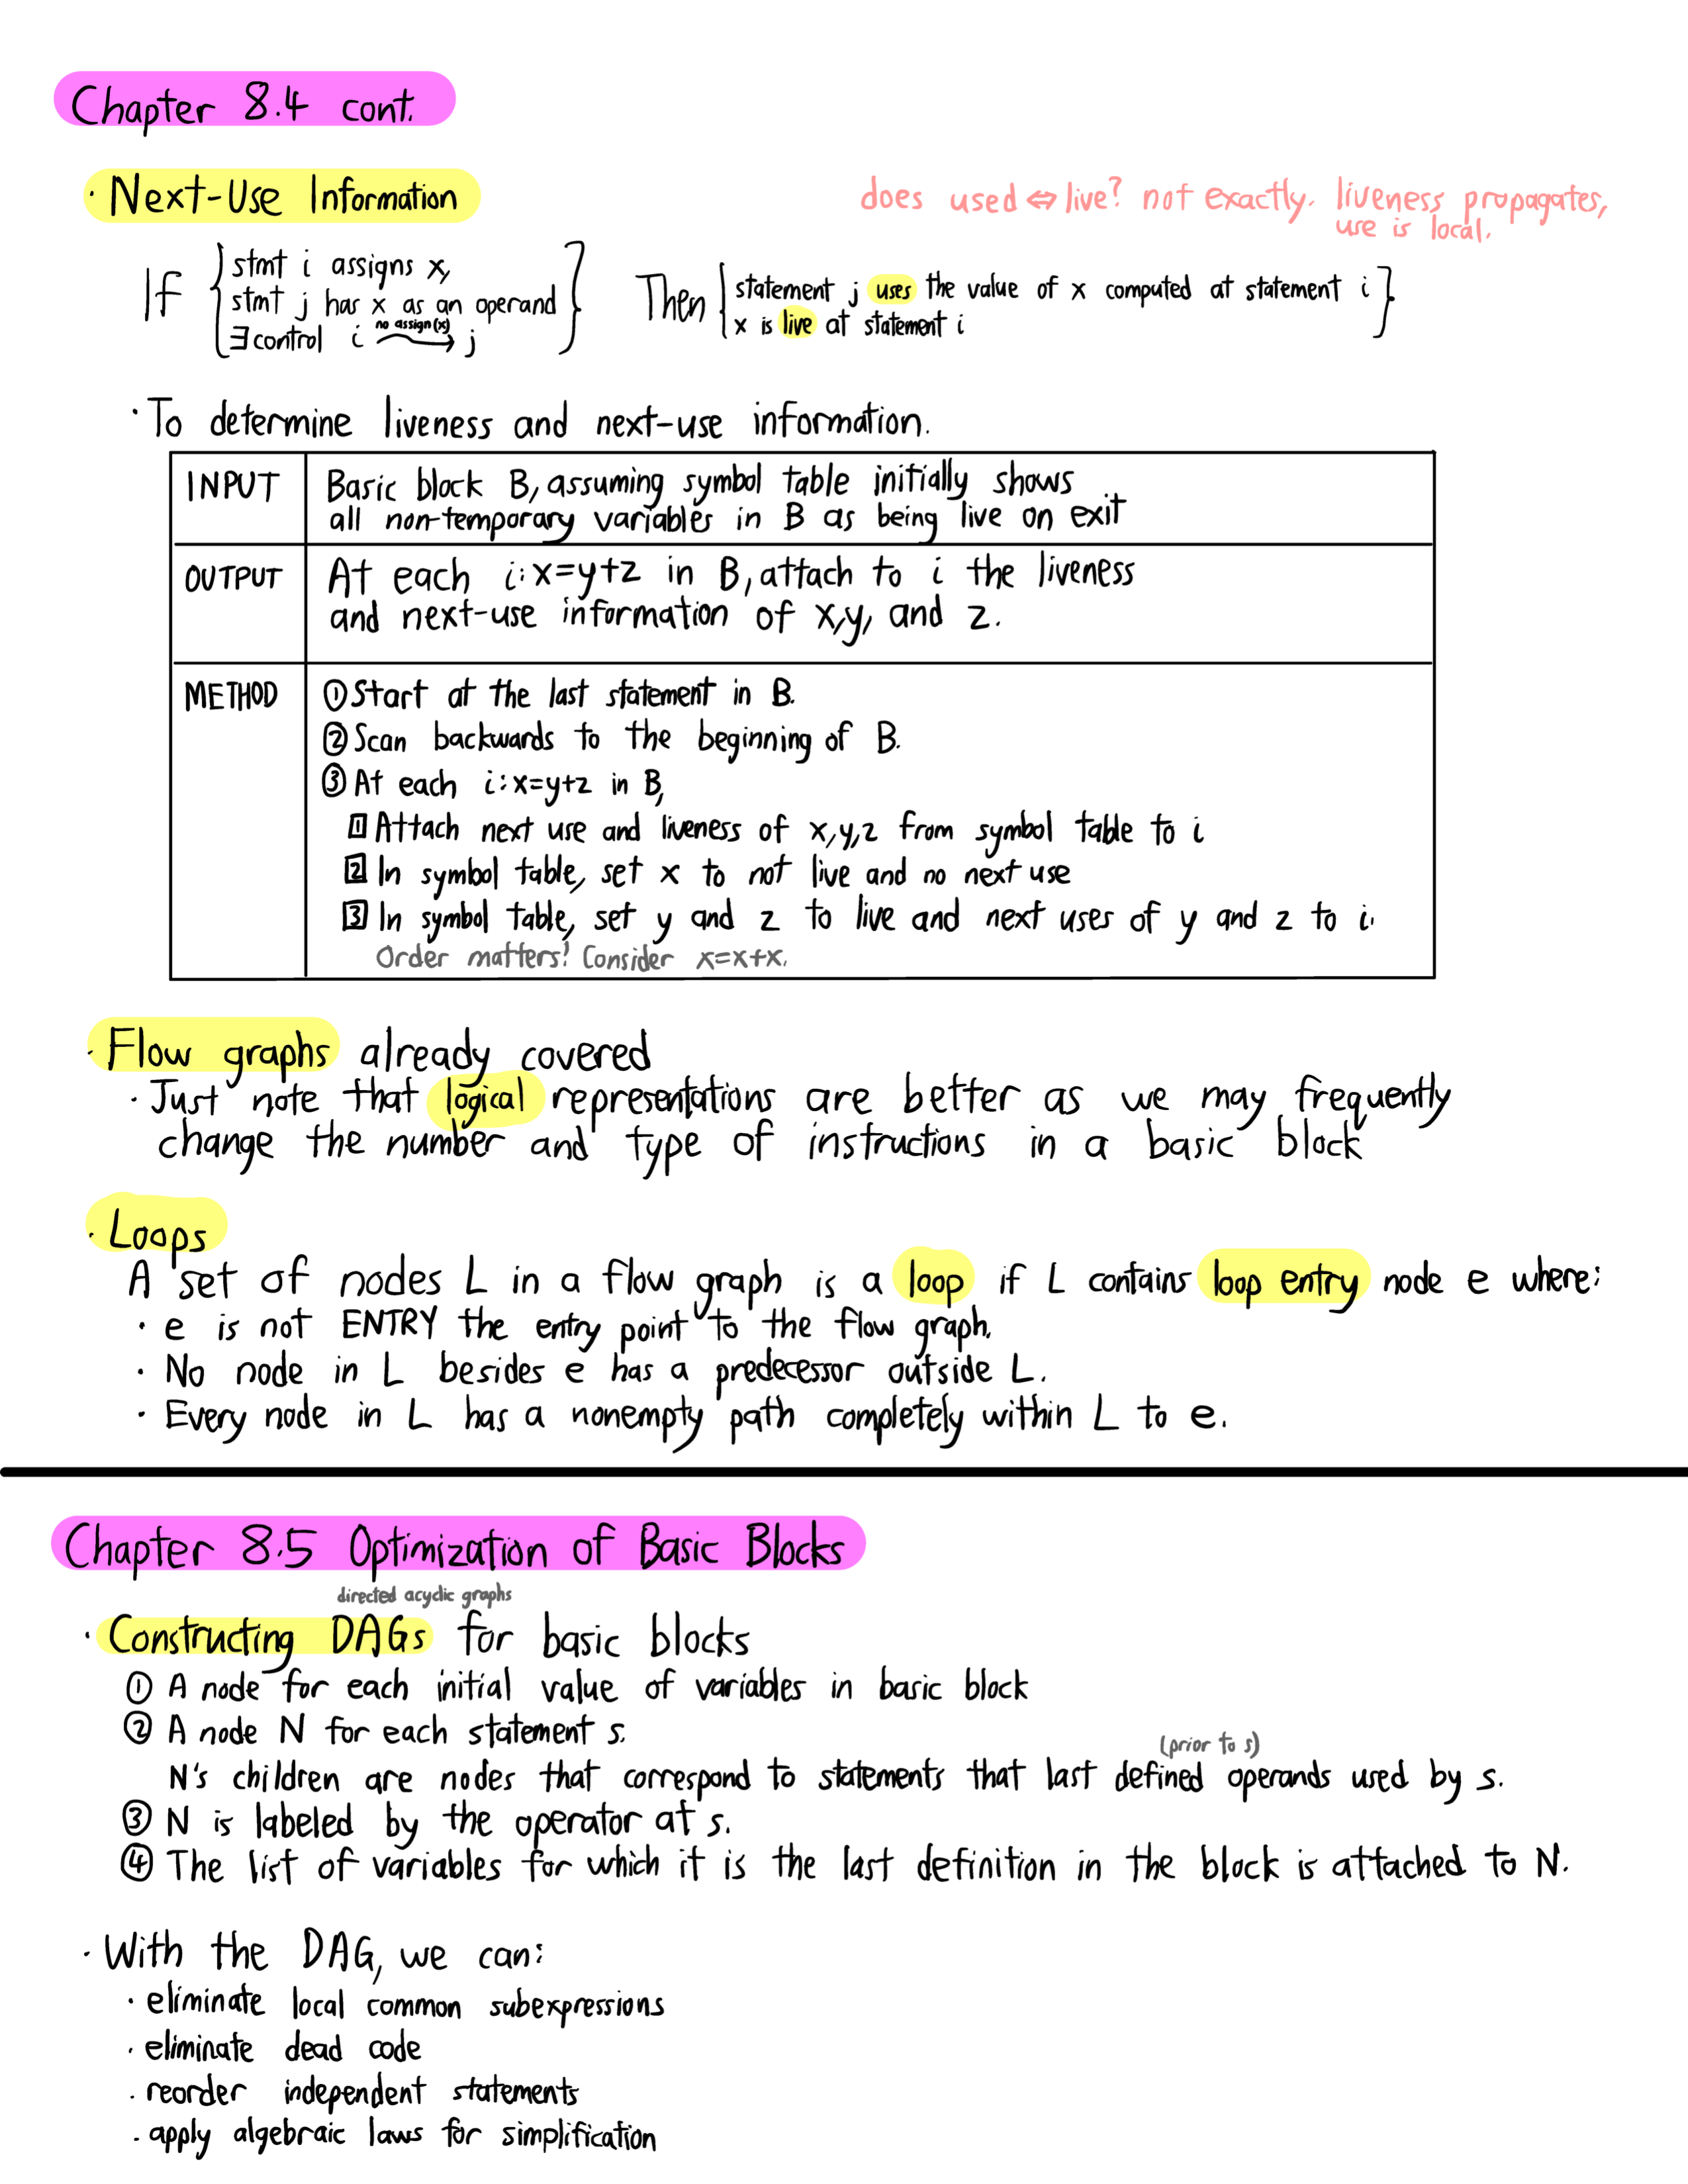 Chapter 8.4 cont.
· Next-Use Information
does used ⇔ live? not exactly. liveness propagates,
use is local.
If { stmt i assigns x,
stmt j has x as an operand
∃ control i no assign(x) → j }
Then { statement j uses the value of x computed at statement i
x is live at statement i }
· To determine liveness and next-use information.
INPUT
Basic block B, assuming symbol table initially shows
all non-temporary variables in B as being live on exit
OUTPUT
At each i: x=y+z in B, attach to i the liveness
and next-use information of x, y, and z.
METHOD
① Start at the last statement in B.
② Scan backwards to the beginning of B.
③ At each i: x=y+z in B,
1 Attach next use and liveness of x, y, z from symbol table to i
2 In symbol table, set x to not live and no next use
3 In symbol table, set y and z to live and next uses of y and z to i.
Order matters! Consider x=x+x.
· Flow graphs already covered
· Just note that logical representations are better as we may frequently
change the number and type of instructions in a basic block
· Loops
A set of nodes L in a flow graph is a loop if L contains loop entry node e where:
· e is not ENTRY the entry point to the flow graph.
· No node in L besides e has a predecessor outside L.
· Every node in L has a nonempty path completely within L to e.
Chapter 8.5 Optimization of Basic Blocks
directed acyclic graphs
· Constructing DAGs for basic blocks
① A node for each initial value of variables in basic block
② A node N for each statement s.
(prior to s)
N's children are nodes that correspond to statements that last defined operands used by s.
③ N is labeled by the operator at s.
④ The list of variables for which it is the last definition in the block is attached to N.
· With the DAG, we can:
· eliminate local common subexpressions
· eliminate dead code
· reorder independent statements
· apply algebraic laws for simplification